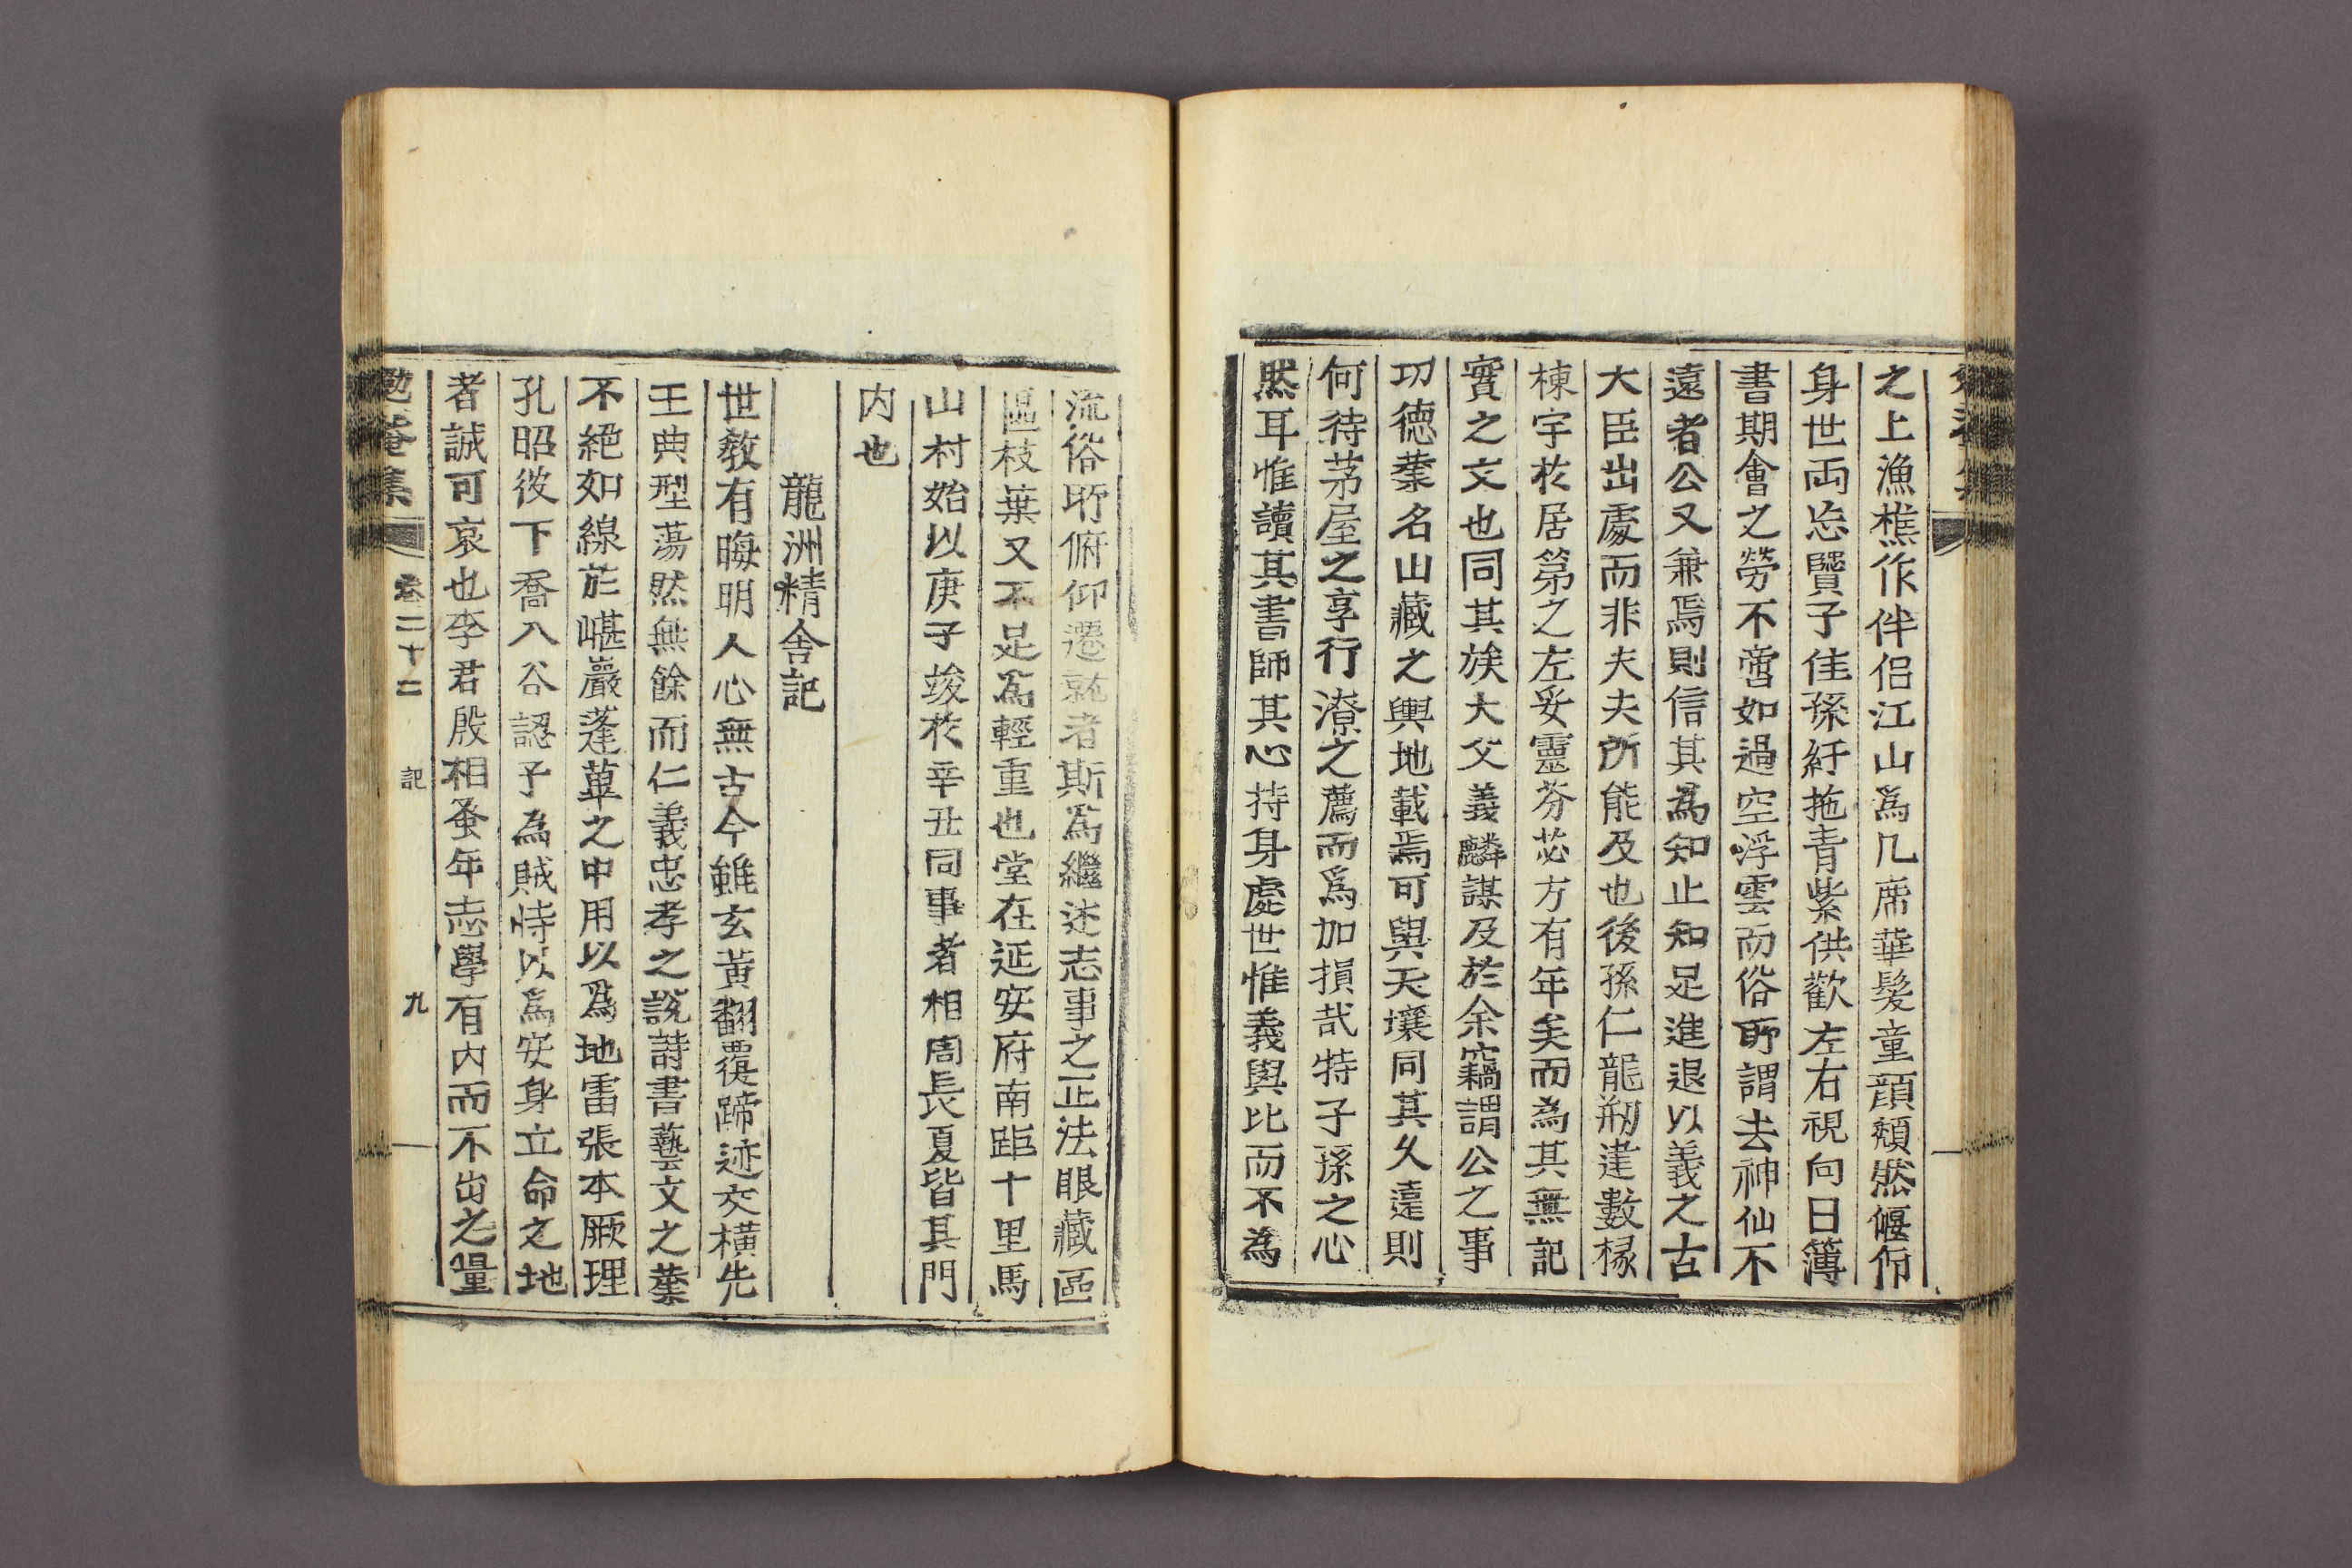 之上漁樵作伴侶江山爲几席華髮童顔頹然偃仰
身世両忘賢子佳孫紆拖青紫供歡左右視向日簿
書期會之勞不啻如過空浮雲而俗所謂去神仙不
遠者公又兼焉則信其爲知止知足進退以義之古
大臣出處而非夫夫所能及也後孫仁龍刱建數椽
棟宇於居第之左妥靈芬苾方有年矣而為其無記
實之文也同其族大父義麟謀及於余竊謂公之事
功德業名山藏之輿地載焉可與天壤同其久遠則
何待茅屋之享行潦之薦而爲加損哉特子孫之心
然耳惟讀其書師其心持身處世惟義與比而不為
流俗所俯仰遷就者斯爲繼述志事之正法眼藏區
區枝葉又不足爲輕重也堂在延安府南距十里馬
山村始以庚子竣於辛丑同事者相周長夏皆其門
内也
龍洲精舍記
世教有晦明人心無古今雖玄黃翻覆蹄迹交橫先
王典型蕩然無餘而仁義忠孝之說詩書藝文之業
不絕如線於嵁巖蓬蓽之中用以爲地雷張本厥理
孔昭彼下喬入谷認子為賊恃以爲安身立命之地
者誠可哀也李君殷相蚤年志學有内而不出之量
勉菴集
卷二十二
記
九